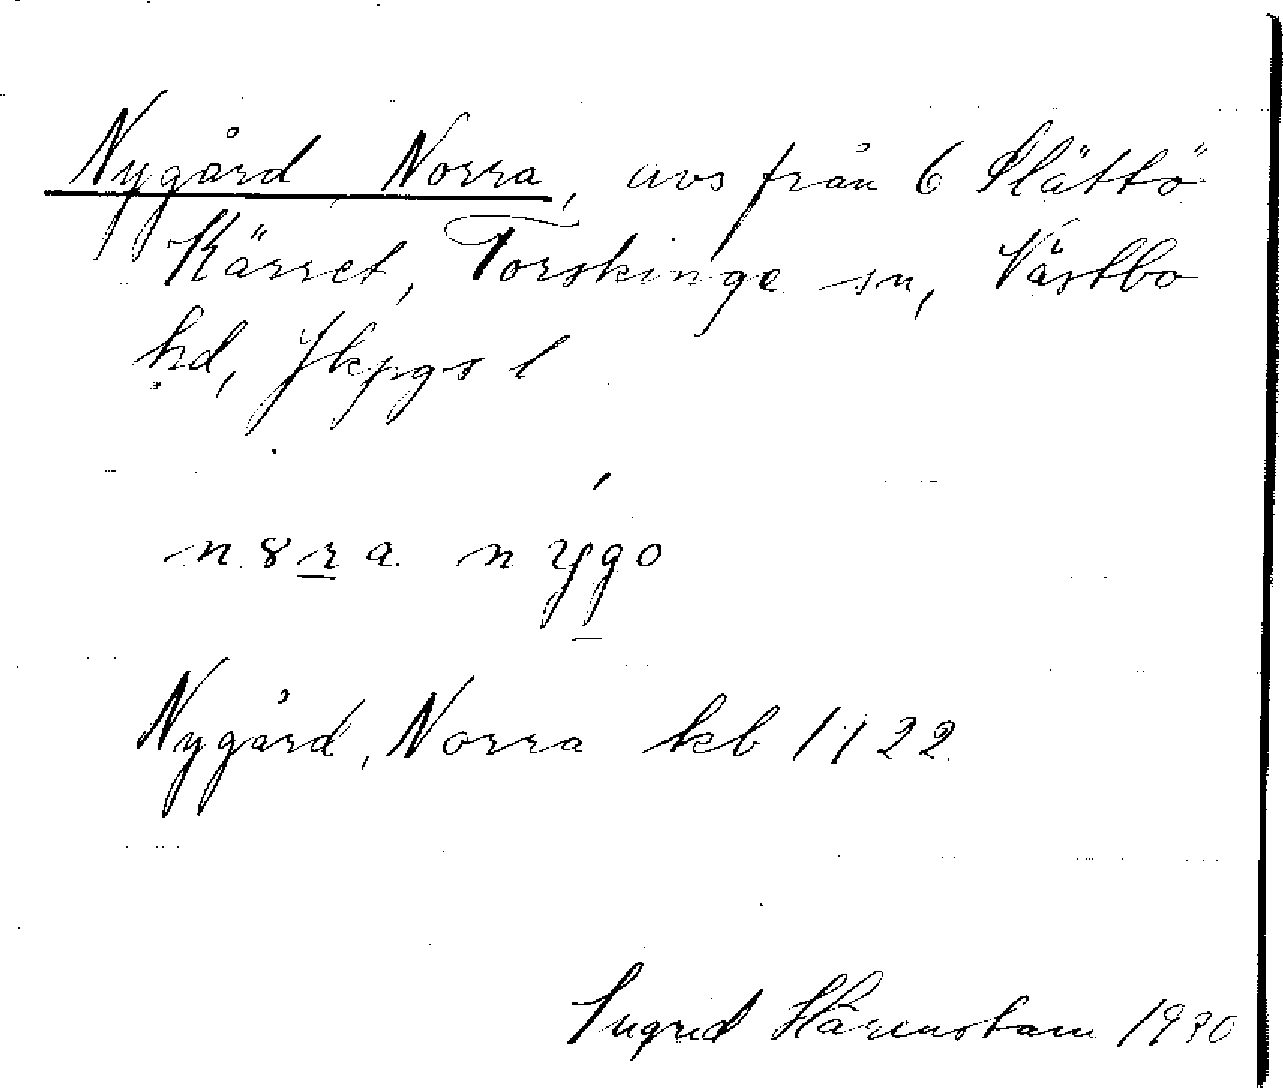 Nygård Norra, avs från 6 Slättö
Kärret, Torskinge sn, Västbo
hd, Jkpgs l
n8ra nýgo
Nygård, Norra kb 1922
Ingrid Härenstam 1930